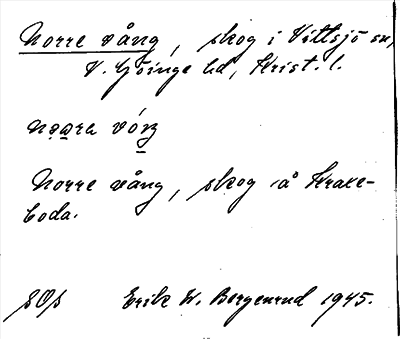 Norre vång, skog i Vittsjö sn,
V. Göinge hd, Krist. l.
Norre vång, skog å Krake-
boda.
Erik W. Borgenrud 1945.